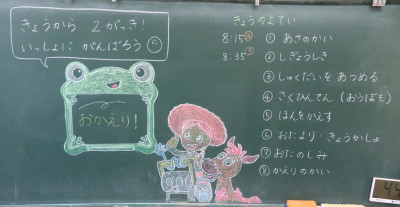 きょうから 2がっき!
いっしょに がんばろう
おかえり!
きょうのよてい
8:15 ① あさのかい
8:35 ② しぎょうしき
③ しゅくだいを あつめる
④ さくひんてん(おうぼも)
⑤ ほんをかえす
⑥ おたより・きょうかしょ
⑦ おたのしみ
⑧ かえりのかい